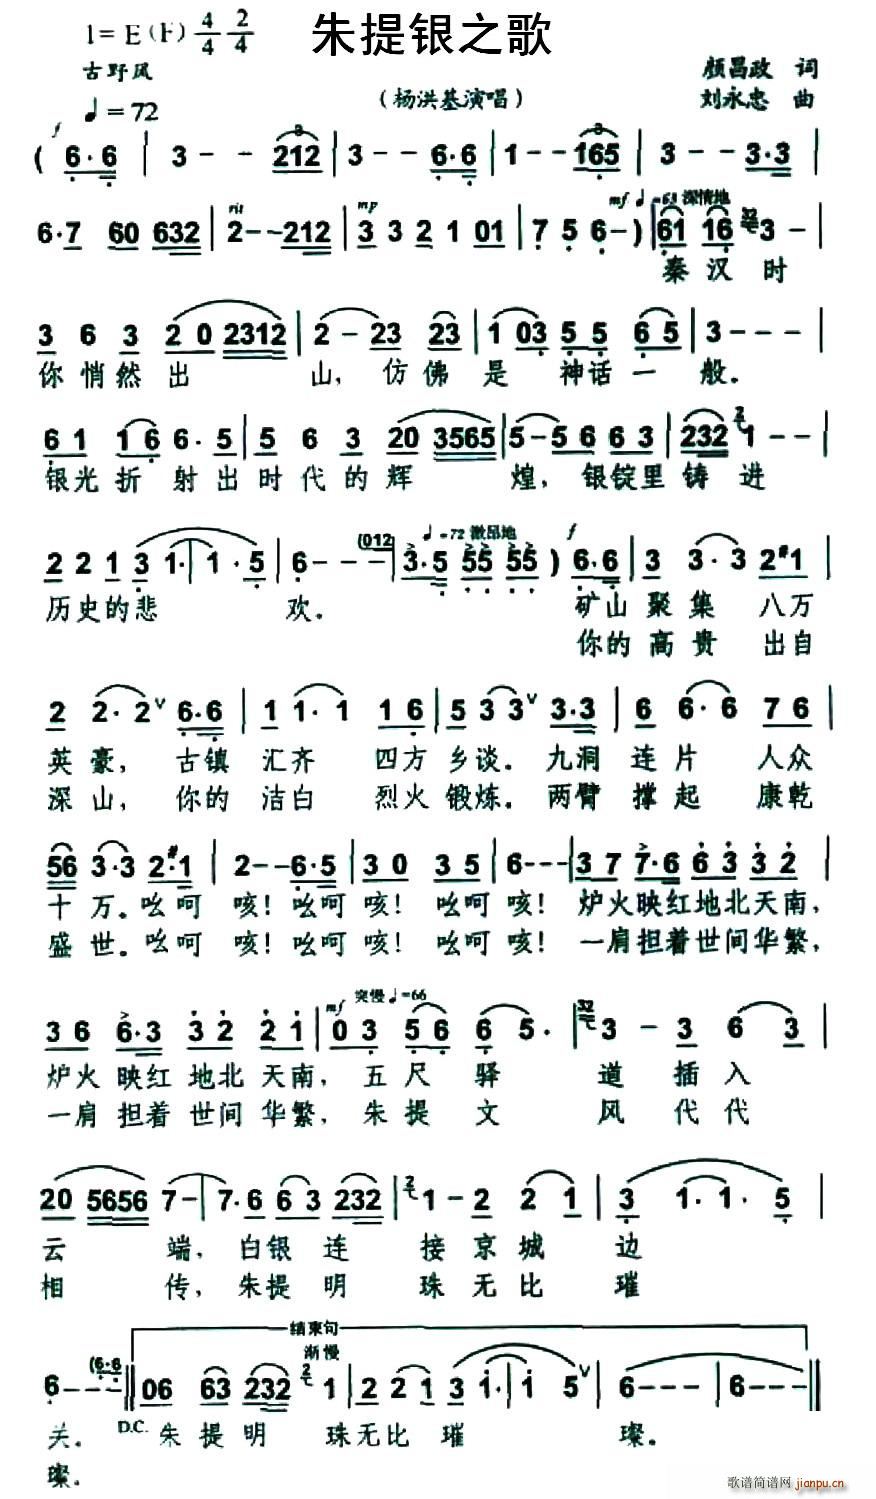 朱提银之歌
1=E(F) 4/4 2/4
古野风
颜昌政 词
♩=72
(杨洪基演唱)
刘永忠 曲
f
(6·6 | 3-- 212 | 3-- 6·6 | 1-- 165 | 3-- 3·3 |
rit mp mf ♩=63 深情地
6·7 60 632 | 2--212 | 3 3 2 1 01 | 7 5 6-) | 61 16 3- |
秦汉时
3 6 3 2 0 2312 | 2-23 23 | 1 03 5 5 6 5 | 3--- |
你悄然出 山, 仿佛是 神话一 般。
6 1 1 6 6·5 | 5 6 3 20 3565 | 5-5 6 6 3 | 232 1-- |
银光折 射出时代的辉 煌, 银锭里铸进
♩=72 激昂地 f
2 2 1 3 1·| 1·5 | 6---(012 | 3·5 55 55) 6·6 | 3 3·3 2#1 |
历史的悲 欢。 矿山聚集 八万
你的高贵 出自
2 2·2 6·6 | 1 1·1 1 6 | 5 3 3 3·3 | 6 6·6 7 6 |
英豪, 古镇汇齐 四方乡谈。九洞连片 人众
深山, 你的洁白 烈火锻炼。两臂撑起 康乾
56 3·3 2·#1 | 2--6·5 | 3 0 3 5 | 6--- | 3 7 7·6 6 3 3 2 |
十万。吆呵 咳!吆呵咳! 吆呵咳! 炉火映红地北天南,
盛世。吆呵 咳!吆呵咳! 吆呵咳! 一肩担着世间华繁,
mf 突慢♩=66
3 6 6·3 3 2 2 1 | 0 3 5 6 6 5· | 3 - 3 6 3 |
炉火映红地北天南, 五尺驿 道插入
一肩担着世间华繁, 朱提文 风代代
20 5656 7-|7·6 6 3 232 | 1-2 2 1 | 3 1·1·5 |
云 端, 白银连 接京城 边
相 传, 朱提明 珠无比 璀
结束句
渐慢
6---(6·6 | 06 63 232 1 | 2 2 1 3 1·|1 5 | 6--- | 6--- ||
关。 D.C. 朱提明 珠无比璀 璨。
璨。
歌谱简谱网 jianpu.cn